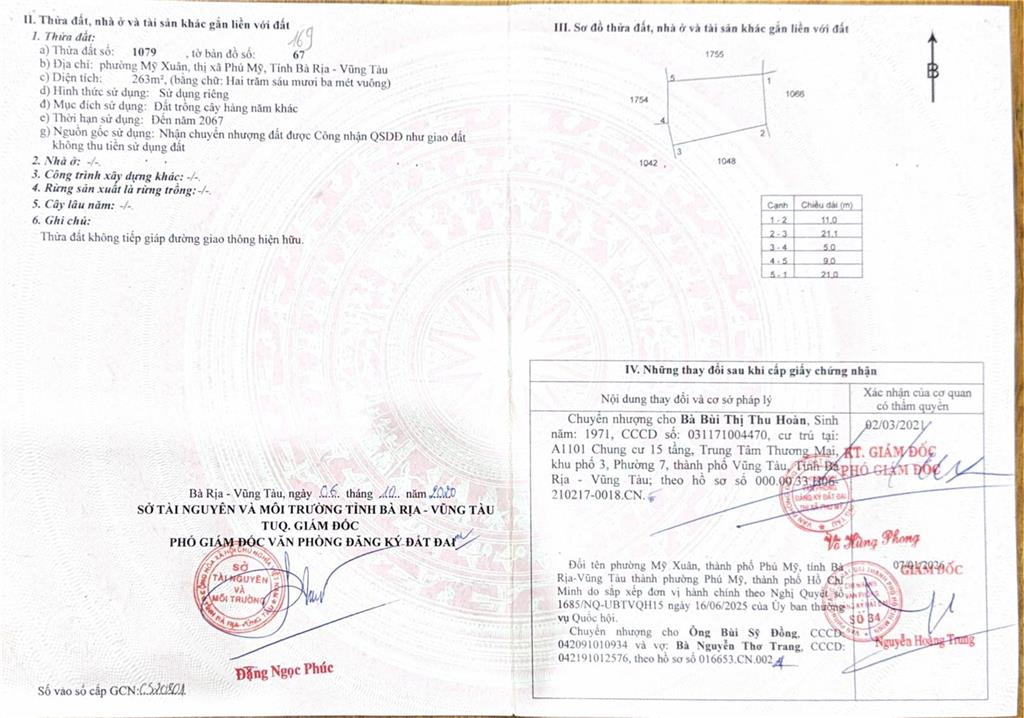 II. Thửa đất, nhà ở và tài sản khác gắn liền với đất
1. Thửa đất:
169
a) Thửa đất số: 1079 , tờ bản đồ số: 67
b) Địa chỉ: phường Mỹ Xuân, thị xã Phú Mỹ, Tỉnh Bà Rịa - Vũng Tàu
c) Diện tích: 263m², (bằng chữ: Hai trăm sáu mươi ba mét vuông)
d) Hình thức sử dụng: Sử dụng riêng
đ) Mục đích sử dụng: Đất trồng cây hàng năm khác
e) Thời hạn sử dụng: Đến năm 2067
g) Nguồn gốc sử dụng: Nhận chuyển nhượng đất được Công nhận QSDĐ như giao đất
không thu tiền sử dụng đất
2. Nhà ở: -/-.
3. Công trình xây dựng khác: -/-.
4. Rừng sản xuất là rừng trồng:-/-.
5. Cây lâu năm: -/-.
6. Ghi chú:
Thửa đất không tiếp giáp đường giao thông hiện hữu.
Bà Rịa - Vũng Tàu, ngày 06 tháng 10 năm 2020
SỞ TÀI NGUYÊN VÀ MÔI TRƯỜNG TỈNH BÀ RỊA - VŨNG TÀU
TUQ. GIÁM ĐỐC
PHÓ GIÁM ĐỐC VĂN PHÒNG ĐĂNG KÝ ĐẤT ĐAI
CỘNG HÒA XÃ HỘI CHỦ NGHĨA VIỆT NAM
SỞ
TÀI NGUYÊN
VÀ
MÔI TRƯỜNG
TỈNH BÀ RỊA - VŨNG TÀU
Đặng Ngọc Phúc
Số vào sổ cấp GCN:
III. Sơ đồ thửa đất, nhà ở và tài sản khác gắn liền với đất
B
1755
5
1
1066
1754
4
2
3
1042
1048
Cạnh Chiều dài (m)
1 - 2 11.0
2 - 3 21.1
3 - 4 5.0
4 - 5 9.0
5 - 1 21.0
IV. Những thay đổi sau khi cấp giấy chứng nhận
Nội dung thay đổi và cơ sở pháp lý
Xác nhận của cơ quan
có thẩm quyền
Chuyển nhượng cho Bà Bùi Thị Thu Hoàn, Sinh
năm: 1971, CCCD số: 031171004470, cư trú tại:
A1101 Chung cư 15 tầng, Trung Tâm Thương Mại,
khu phố 3, Phường 7, thành phố Vũng Tàu, Tỉnh Bà
Rịa - Vũng Tàu; theo hồ sơ số 000.00.33.H06-
210217-0018.CN.
02/03/2021
KT. GIÁM ĐỐC
PHÓ GIÁM ĐỐC
VĂN PHÒNG
ĐĂNG KÝ ĐẤT ĐAI
THỊ XÃ PHÚ MỸ
Võ Hùng Phong
Đổi tên phường Mỹ Xuân, thành phố Phú Mỹ, tỉnh Bà
Rịa-Vũng Tàu thành phường Phú Mỹ, thành phố Hồ Chí
Minh do sắp xếp đơn vị hành chính theo Nghị Quyết số
1685/NQ-UBTVQH15 ngày 16/06/2025 của Ủy ban thường
vụ Quốc hội.
Chuyển nhượng cho Ông Bùi Sỹ Đồng, CCCD:
042091010934 và vợ: Bà Nguyễn Thơ Trang, CCCD:
042191012576, theo hồ sơ số 016653.CN.002
07/01/2026
GIÁM ĐỐC
CHI NHÁNH
VĂN PHÒNG
ĐĂNG KÝ ĐẤT ĐAI
SỐ 34
Nguyễn Hoàng Trung